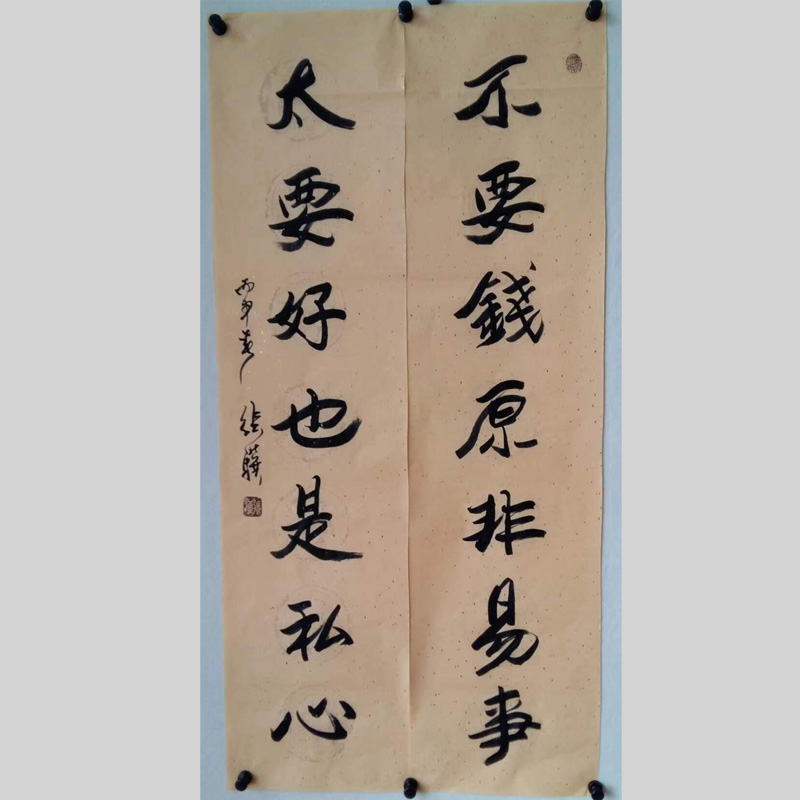 不要錢原非易事
太要好也是私心
丙申春